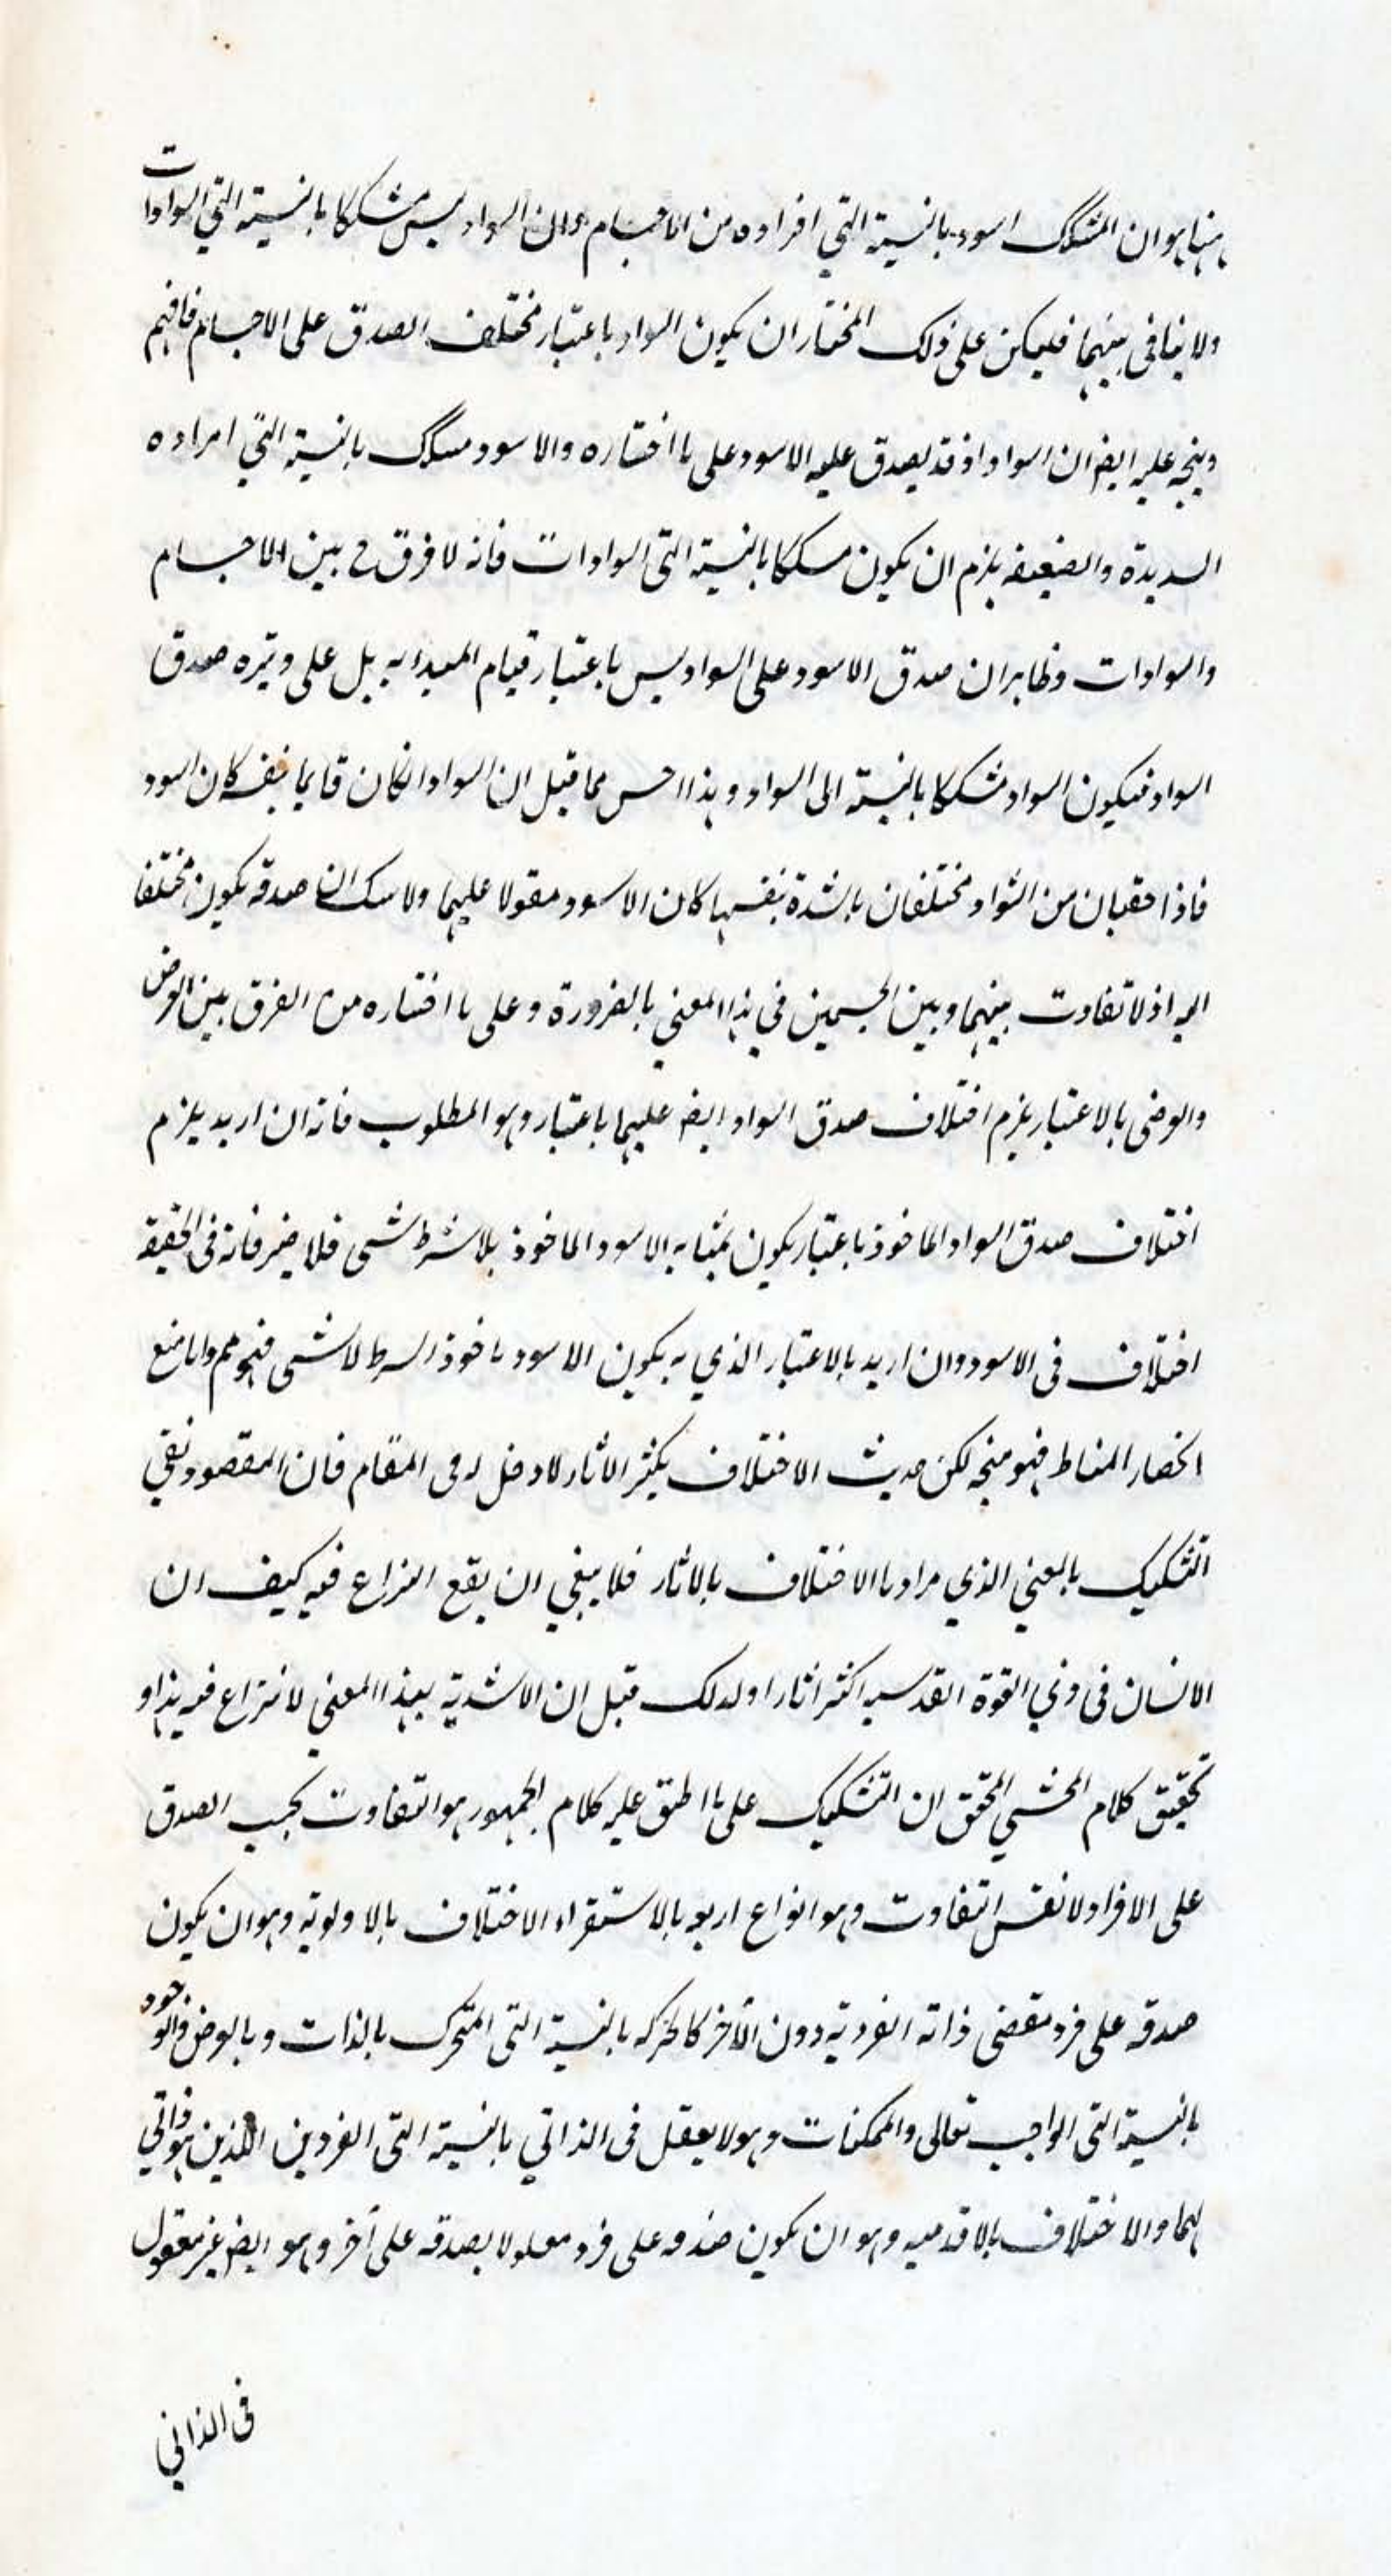 ما هنا هو ان المشكك اسود بالنسبة الى افراده من الاجسام وان السواد ليس مشككا بالنسبة الى السوادات
ولا ينافى بينهما فليكن على ذلك المختار ان يكون السواد باعتبار مختلف الصدق على الاجسام فافهم
ويتجه عليه ايضا ان السواد اذ قد يصدق عليه الاسود على ما اختاره والاسود مسكك بالنسبة الى افراده
السديدة والضعيفه يلزم ان يكون مسككا بالنسبة الى السوادات فانه لا فرق ح بين الاجسام
والسوادات وظاهر ان صدق الاسود على السواد ليس باعتبار قيام المبدا به بل على وتيره صدق
السواد فيكون السواد مشككا بالنسبة الى السواد وهذا احسن مما قيل ان السواد الكان قايما بنفسه كان اسود
فاذا فرد من السواد مختلفان بالشدة بنفسها كان الاسود مقولا عليهما ولا سك ان صدقه يكون مختلفا
اليه اذ لا تفاوت بينهما وبين الجسمين في هذا المعنى بالضرورة وعلى ما اختاره من الفرق بين العرض
والعرضى بالاعتبار يلزم اختلاف صدق السواد ايضا عليهما باعتبار وهو المطلوب فانه ان اريد يلزم
اختلاف صدق السواد الماخوذ باعتبار يكون بمثابه الاسود الماخوذ بلا شرط شى فلا ضير فانه فى الحقيقه
اختلاف فى الاسود وان اريد بالاعتبار الذي به يكون الاسود ماخوذ السرط لاشى فهو مم واما منع
انحصار المناط فهو متجه لكن حديث الاختلاف بكثير الاثار لا دخل له فى المقام فان المقصود نفي
التشكيك بالمعني الذي مراد ما الاختلاف بالاثار فلا ينبغي ان يقع النزاع فيه كيف ان
الانسان فى ذي القوة القدسيه اكثر اثارا ولدلك قيل ان الاشدية بهذا المعني لا نزاع فيه هذا و
تحقيق كلام المحشي المحقق ان التشكيك على ما اطبق عليه كلام الجمهور هو التفاوت بحسب الصدق
على الافراد لا نفس التفاوت وهو انواع اربعه بالاستقراء الاختلاف بالاولويه وهو ان يكون
صدقه على فرد مقتضى ذاته الفرديه دون الآخر كالحركه بالنسبة الى المتحرك بالذات وبالعرض والوجود
بالنسبة الى الواجب تعالى والممكنات وهو لا يعقل فى الذاتي بالنسبة الى الفردين اللذين هو ذاتي
لهما والاختلاف بالاقدميه وهو ان يكون صدقه على فرد معلولا بصدقه على آخر وهو ايضا غير معقول
فى الذاتي